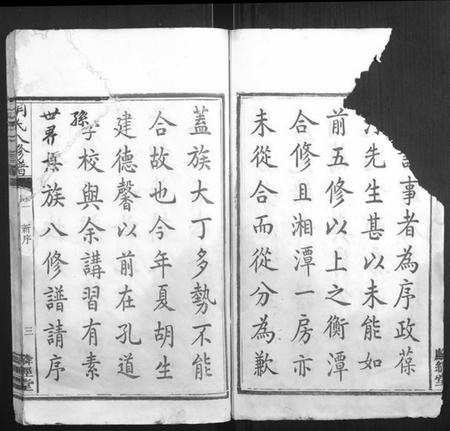 事者為序政葆
先生甚以未能如
前五修以上之衡潭
合修且湘潭一房亦
未從合而從分為歉
蓋族大丁多勢不能
合故也今年夏胡生
建德馨以前在孔道
學校與余講習有素
孫
世界其族八修譜請序
氏八修譜
新序
三
經堂